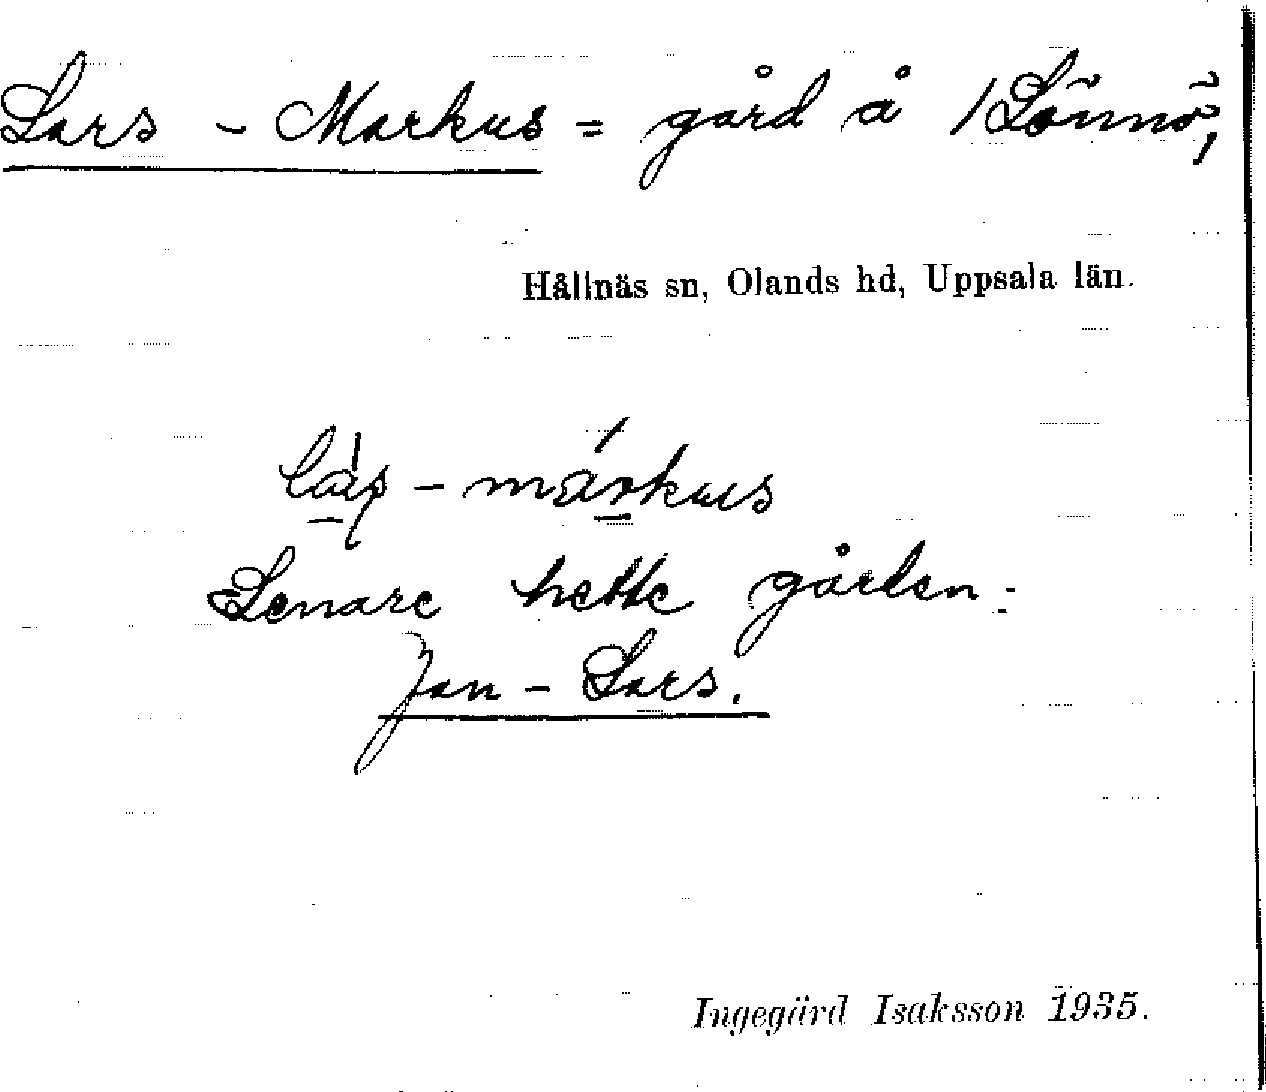 Lars - Markus = gård å /Lönnö,
Hållnäs sn, Olands hd, Uppsala län.
las - márkus
Senare hette gården:
Jan - Lars.
Ingegärd Isaksson 1935.